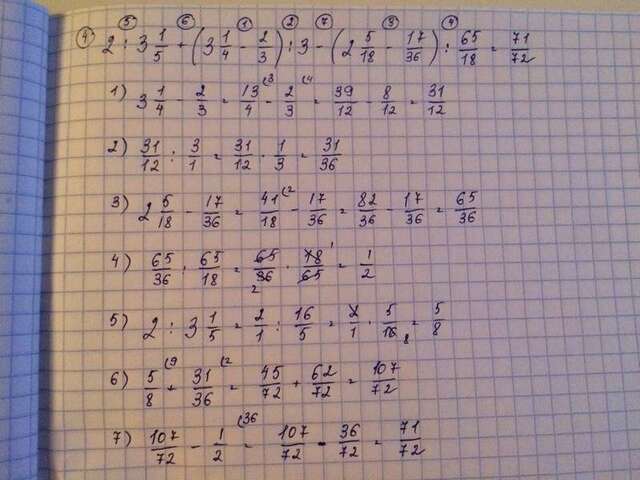 ④ 2 : 3 1/5 + (3 1/4 - 2/3) : 3 - (2 5/18 - 17/36) : 65/18 = 71/72
1) 3 1/4 - 2/3 = 13/4 - 2/3 = 39/12 - 8/12 = 31/12
2) 31/12 : 3/1 = 31/12 · 1/3 = 31/36
3) 2 5/18 - 17/36 = 41/18 - 17/36 = 82/36 - 17/36 = 65/36
4) 65/36 : 65/18 = 65/36 · 18/65 = 1/2
5) 2 : 3 1/5 = 2/1 : 16/5 = 2/1 · 5/16 = 5/8
6) 5/8 + 31/36 = 45/72 + 62/72 = 107/72
7) 107/72 - 1/2 = 107/72 - 36/72 = 71/72